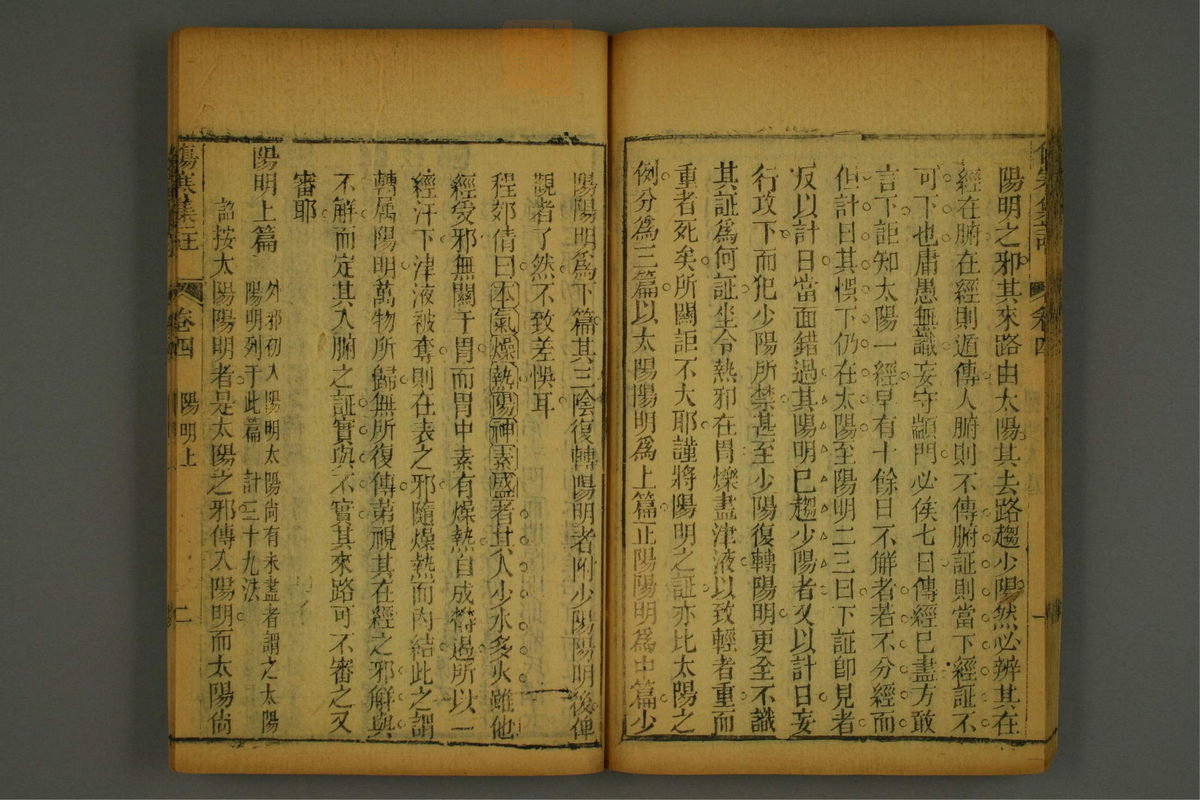 陽明之邪其來路由太陽其去路趨少陽然必辨其在
經在腑在經則遞傳入腑則不傳腑証則當下經証不
可下也庸愚無識妄守顓門必俟七日傳經已盡方敢
言下詎知太陽一經早有十餘日不解者若不分經而
但計日其悞下仍在太陽至陽明二三日下証卽見者
反以計日當面錯過其陽明已趨少陽者又以計日妄
行攻下而犯少陽所禁甚至少陽復轉陽明更至不識
其証爲何証坐令熱邪在胃爍盡津液以致輕者重而
重者死矣所關詎不大耶謹將陽明之証亦比太陽之
例分爲三篇以太陽陽明爲上篇正陽陽明爲中篇少
陽陽明爲下篇其三陰復轉陽明者附少陽陽明後俾
觀者了然不致差悞耳
程郊倩曰本氣燥熱陽神素盛者其人少水多火雖他
經受邪無關于胃而胃中素有燥熱自成符過所以一
經汗下津液被奪則在表之邪隨燥熱而內結此之謂
轉属陽明萬物所歸無所復傳第覗其在經之邪解與
不解而定其入腑之証實與不實其來路可不審之又
審耶
陽明上篇 外邪初入陽明太陽尚有未盡者謂之太陽
陽明列于此篇 計三十九法
詔按太陽陽明者是太陽之邪傳入陽明而太陽尙
傷寒集註 卷四 陽明上 二
卷四 一